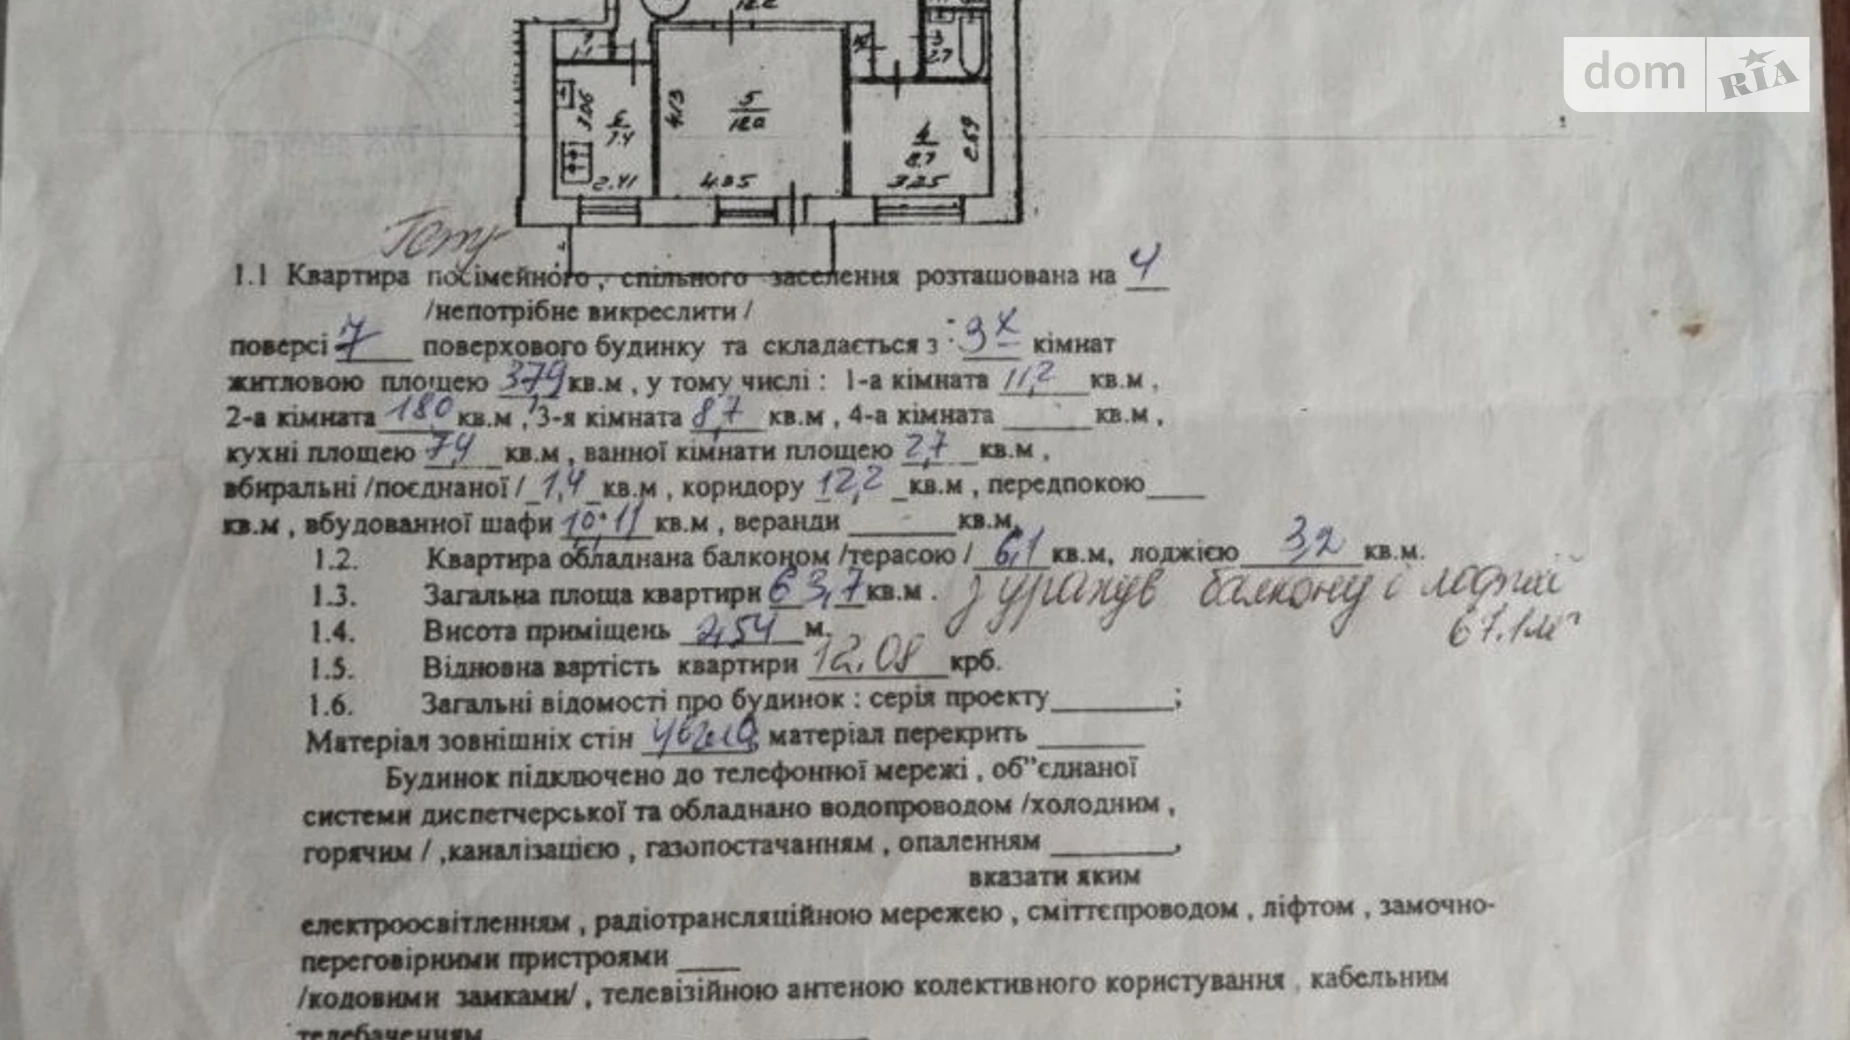 12.2
dom RIA
7
1.1
3
2.7
3.06
6
7.4
4.13
5
18.0
4
8.7
2.69
2.41
4.35
3.25
1.1 Квартира посімейного , спільного заселення розташована на 4
/непотрібне викреслити /
поверсі 7 поверхового будинку та складається з 3х кімнат
житловою площею 37,9 кв.м , у тому числі : 1-а кімната 11,2 кв.м ,
2-а кімната 18,0 кв.м , 3-я кімната 8,7 кв.м , 4-а кімната ______ кв.м ,
кухні площею 7,4 кв.м , ванної кімнати площею 2,7 кв.м ,
вбиральні /поєднаної / 1,4 кв.м , коридору 12,2 кв.м , передпокою____
кв.м , вбудованної шафи 1,0; 1,1 кв.м , веранди _______ кв.м,
1.2. Квартира обладнана балконом /терасою / 6,1 кв.м, лоджією 3,2 кв.м.
1.3. Загальна площа квартири 63,7 кв.м . з урахув балкону і лоджій
67.1 м²
1.4. Висота приміщень 2,54 м.
1.5. Відновна вартість квартири 12.08 крб.
1.6. Загальні відомості про будинок : серія проекту________;
Матеріал зовнішніх стін цегла, матеріал перекрить _______
Будинок підключено до телефонної мережі , об"єднаної
системи диспетчерської та обладнано водопроводом /холодним ,
горячим / ,каналізацією , газопостачанням , опаленням ________,
вказати яким
електроосвітленням , радіотрансляційною мережею , сміттєпроводом , ліфтом , замочно-
переговірними пристроями ____
/кодовими замками/ , телевізійною антеною колективного користування , кабельним
телебаченням